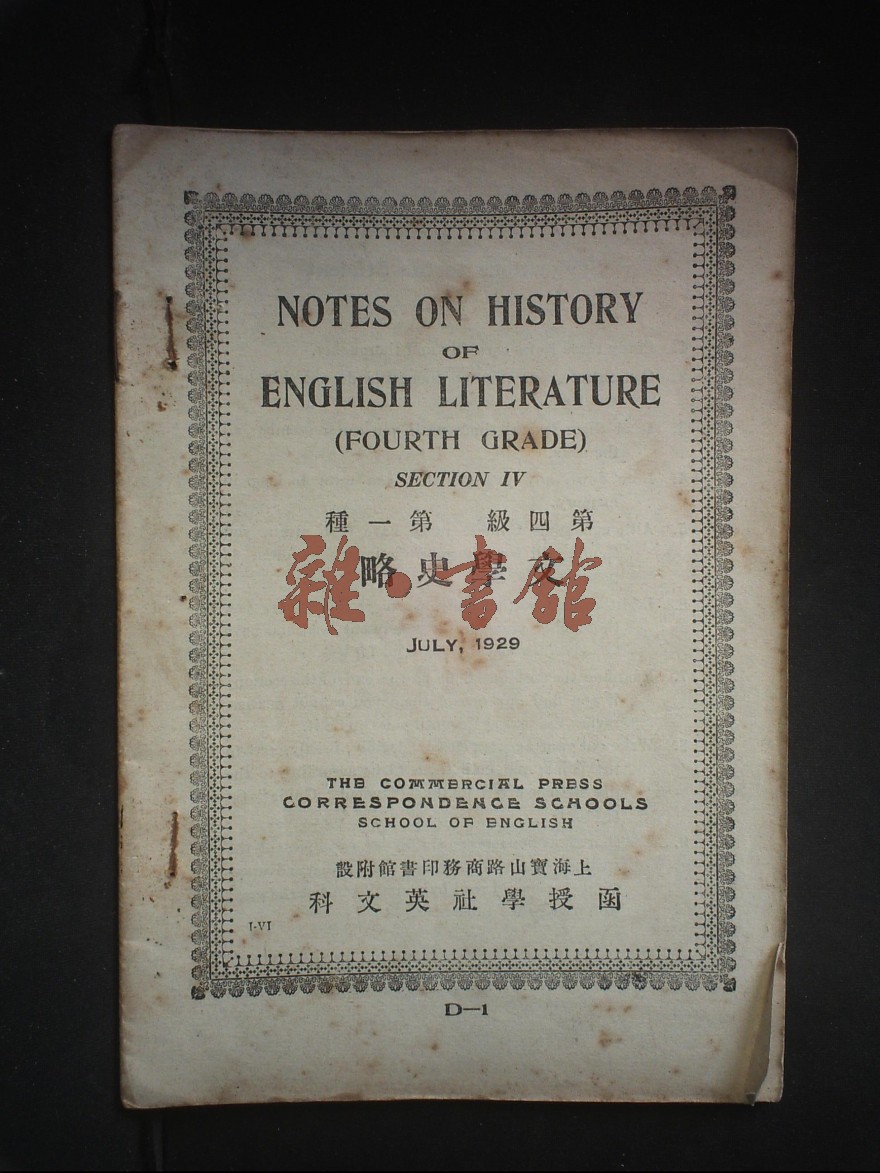 NOTES ON HISTORY
OF
ENGLISH LITERATURE
(FOURTH GRADE)
SECTION IV
第四級 第一種
文學史略
雜·書館
JULY, 1929
THE COMMERCIAL PRESS
CORRESPONDENCE SCHOOLS
SCHOOL OF ENGLISH
上海寶山路商務印書館附設
函授學社英文科
I-VI
D—1